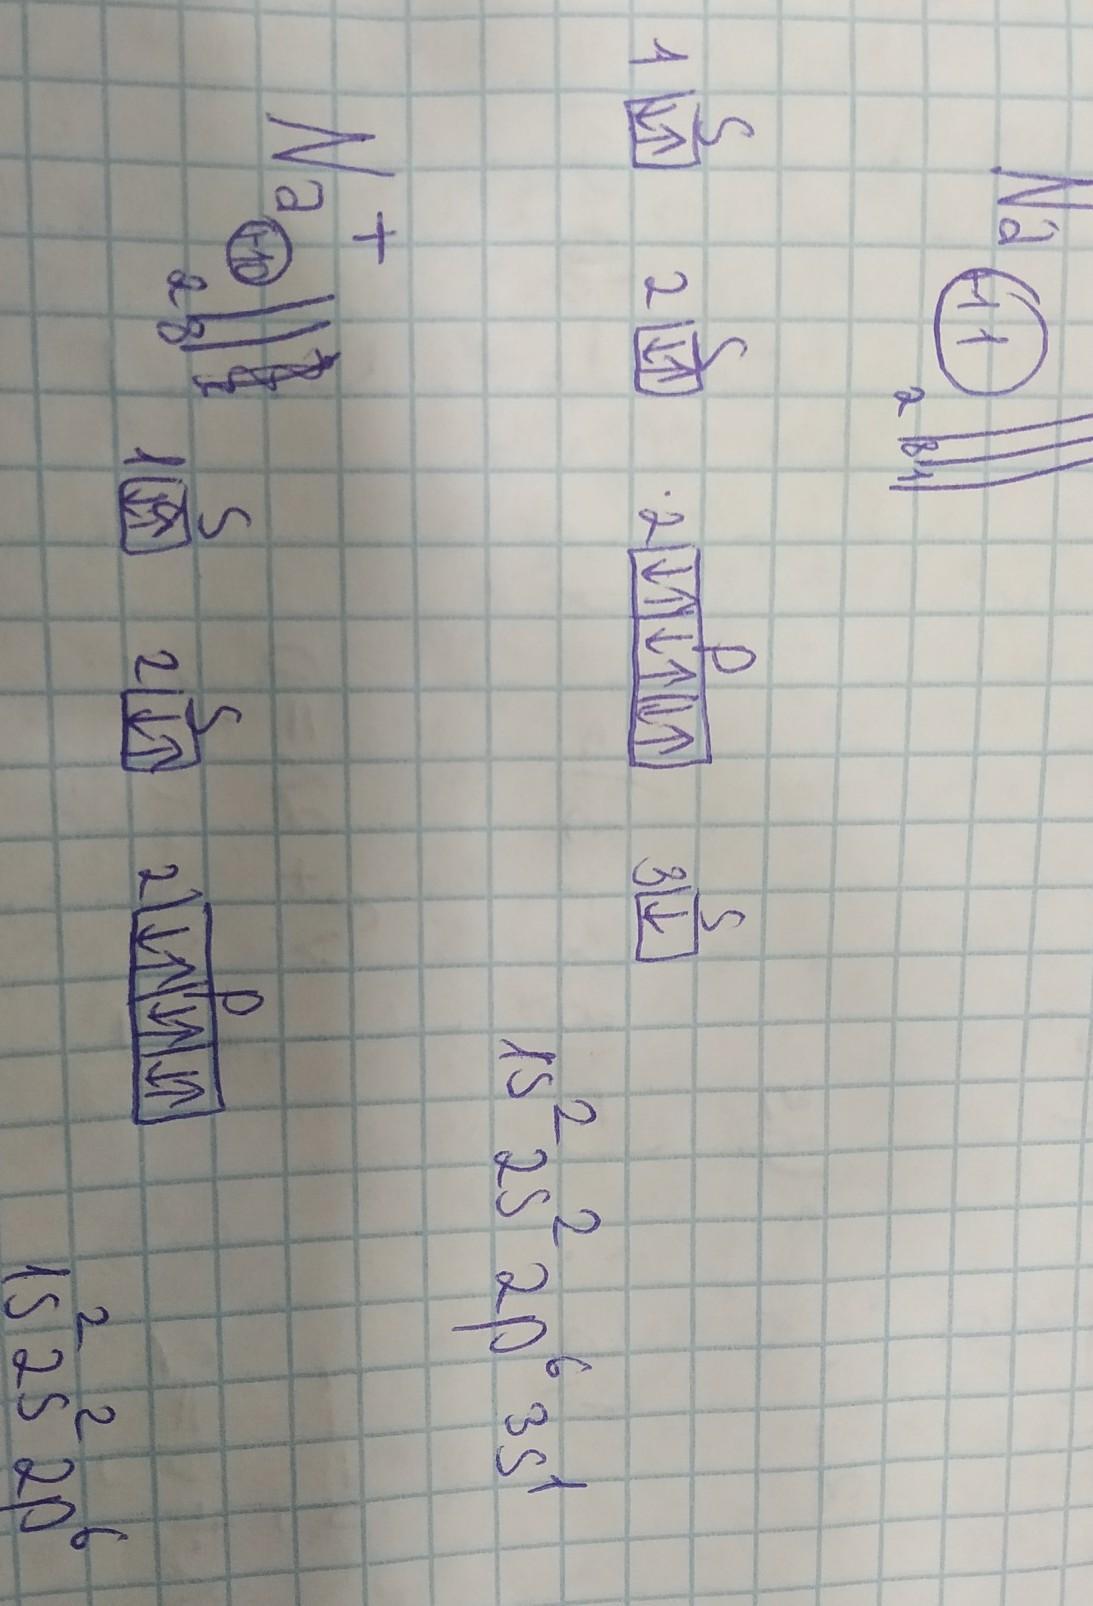 Na +11 2 8 1
1 S 2 S 2 p 3 S
1s² 2s² 2p⁶ 3s¹
Na⁺ +10 2 8
1 S 2 S 2 p
1s² 2s² 2p⁶